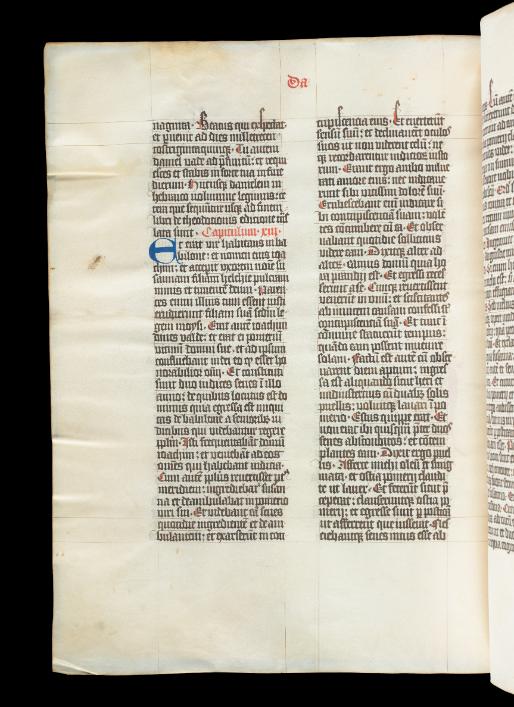 Da
naginta. Beatus qui expectat
et puenit ad dies mille trecen
tos triginta quinqz. Tu autem
daniel vade ad pfinitū: et requi
esces et stabis in sorte tua in fine
dierum. Hucusqz danielem in
hebreo volumine legimus: et
cetera que sequūtur usqz ad finem
libri de theodotionis editione trās
lata sunt. Capitulum. xiii.
Et erat vir habitans in ba
bilone: et nomen eius ioa
chim: et accepit uxorem noīe su
sannam filiam helchie pulcram
nimis et timentē deum. Paren
tes enim illius cum essent iusti
erudierunt filiam suā secūdū le
gem moysi. Erat autē ioachim
dives valde: et erat ei pomeriū
vicinū domui sue. et ad ipsum
confluebant iudei eo qz esset ho
norabilior oīm. Et constituti
sunt duo iudices senes ī illo
anno: de quibus locutus est do
minus quia egressa est iniqui
tas de babilone a senioribz iu
dicibus qui videbantur regere
pplm. Isti frequentabāt domū
ioachim: et veniebāt ad eos
omēs qui habebant iudicia.
Cum autē pplus revertisset post
meridiem: ingrediebat susan
na et deambulabat in pomerio
viri sui. Et videbant eā senes
quotidie ingredientē et deam
bulantem: et exarserūt in con
cupiscentia eius. Et everterūt
sensū suū: et declinaverūt oculos
suos ut non viderent celū: ne
qz recordarentur iudicioz iusto
rum. Erant ergo ambo vulne
rati amore eius: nec indicave
runt sibi prossimi dolorē suū.
Erubescebant enī indicare si
bi concupiscentiā suam: volē
tes cōcumbere cū ea. Et obser
vabant quotidie sollicitius
videre eam. Dixitqz alter ad
alterz. Eamus domū quia ho
ra prandii est. Et egressi reces
serunt a se. Cumqz revertissent
venerūt in unū: et sciscitantes
ab invicem causam confessi sūt
concupiscentiā suā. Et tunc ī
cōmune statuerunt tempus:
quādo eam possent invenire
solam. Factū est autē cū obser
varent diem aptum: ingres
sa est aliquando sicut heri et
nudiustertius cū duabz solis
puellis: voluitqz lavari ī po
merio. Estus quippe erat. Et
non erat ibi quisqz pter duos
senes absconditos: et cōtem
plantes eam. Dixit ergo puel
lis. Afferte michi oleū et smig
mata: et ostia pomerii claudi
te ut laver. Et fecerūt sicut p
ceperat: clauseruntqz ostia po
merii: et egresse sunt p posticū
ut afferrent que iusserat. Nes
ciebantqz senes intus esse ab